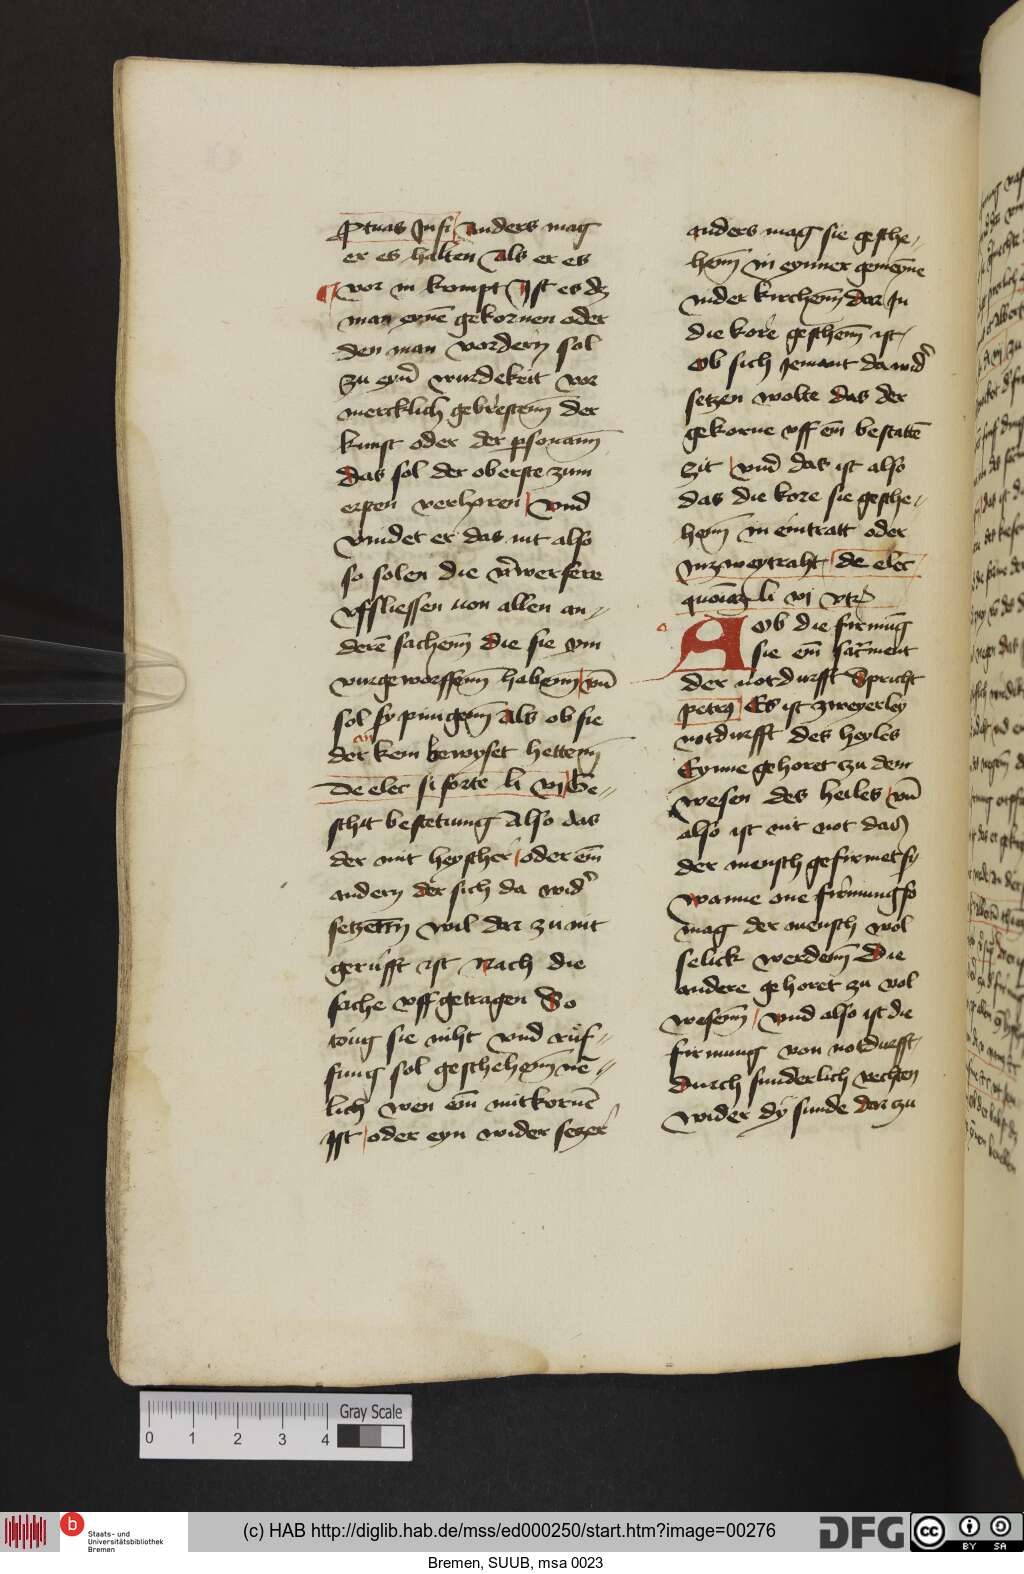 ptuas Jn fi anders mag
er es halten Als er es
vor in kompt Jst es dz
man eynē gekornen oder
den man vordern sol
zu eyn̄ wurdekeit vor
mercklich gebrestenn̄ der
kunst oder der psonann̄
das sol der oberste zum
ersten verhoren vnd
vindet er das nit also
so solen die v̄werfere
vffsliessen uon allen an=
derē sachenn̄ die sie ym
vurgeworffenn̄ habenn̄ vn̄
sol sy pingenn̄ Als ob sie
der kein bewyset hettenn̄
De elec si forte li vj Ge=
schit bestetung Also das
der nit heyscher oder em̄
andern der sich da wid̾
setzenn̄ wil dar zu nit
gerufft ist Nach die
sache vff getragen So
toug sie niht vnd ruf=
fung sol geschehenn̄ ne=
lich wen em̄ mitkornē
Jst oder eyn wider sezer
anders mag sie gesche=
henn̄ in eynner gemeyne
inder kirchenn̄ dar Jn
die kore geschenn̄ ist
Ob sich Jemant da wid̾
setzen wolte das der
gekorne vff em̄ bestattē
zit vnd das ist also
das die kore sie gesche=
henn̄ in eintratt oder
Jnzweytraht de elec
quoīaz li vj vtz
Ob die firmūg
A sie em̄ sacment
der notdurfft Spricht
petrꝯ Es ist zweyerley
notdurfft des heyles
Eynne gehoret zu dem
wesen des heiles vn̄
also ist nit not das
der mensch gefirmet sy
wanne one firmung so
mag der mensch wol
selick werdenn̄ Die
andere gehoret zu wol
wesenn̄ vnd also ist die
firmung von notdurfft
durch sunderlich vechten
wider dy sunde dar zu
0 1 2 3 4
Gray Scale
b Staats- und
Universitätsbibliothek
Bremen
(c) HAB http://diglib.hab.de/mss/ed000250/start.htm?image=00276
DFG
cc BY SA
Bremen, SUUB, msa 0023